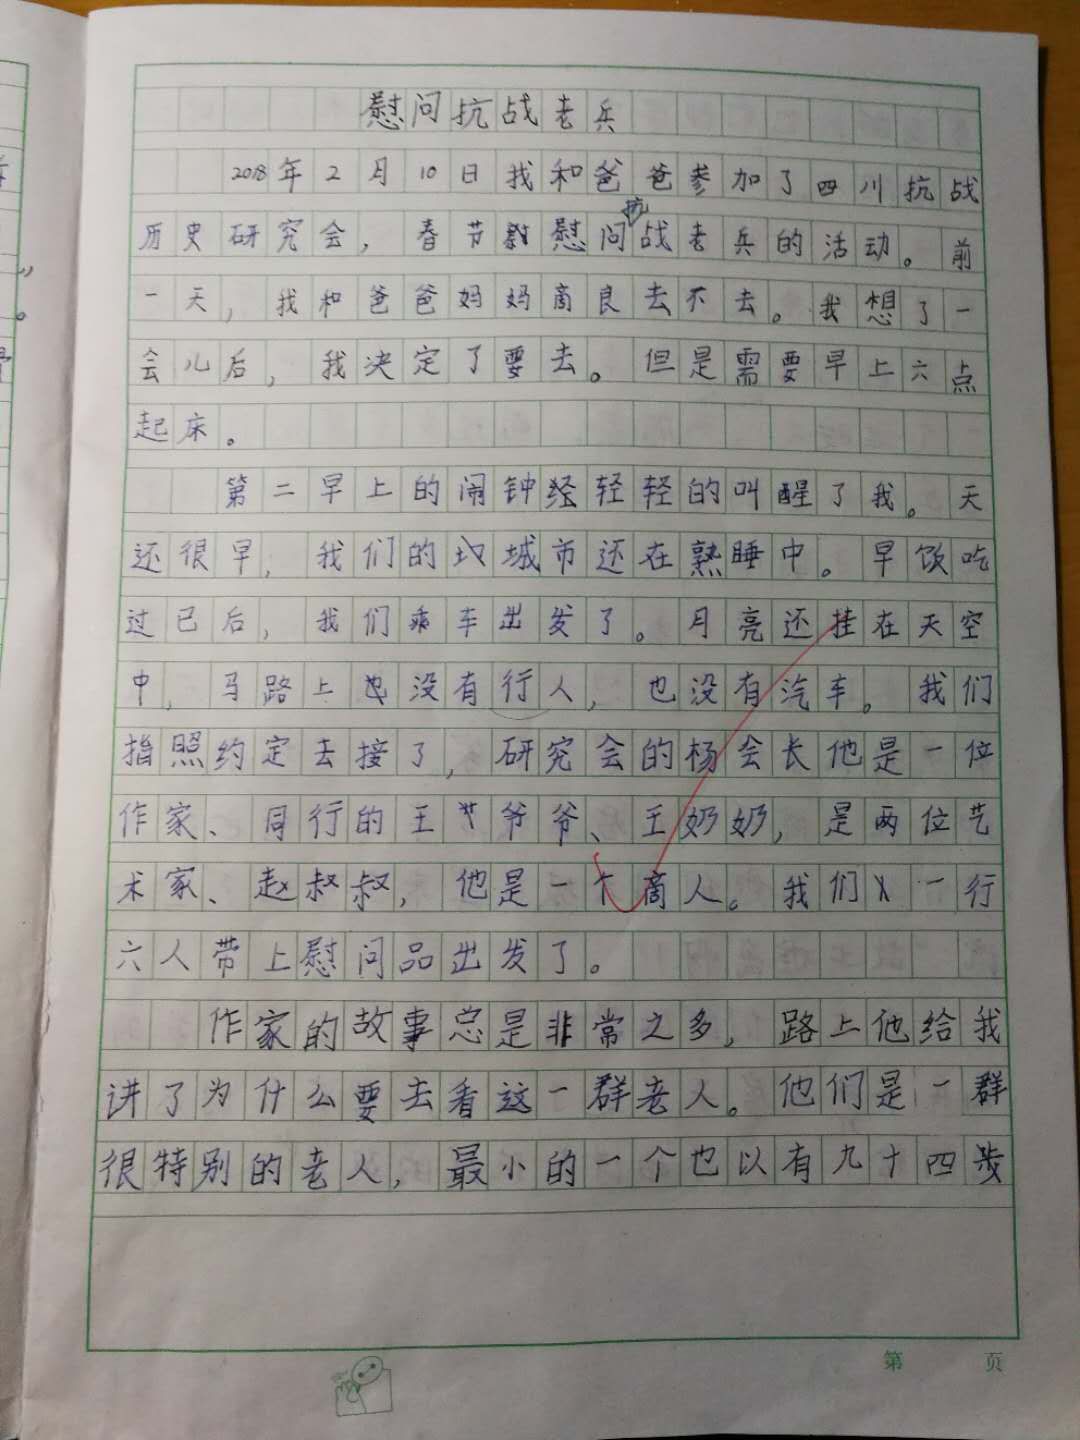 慰问抗战老兵
2018年2月10日我和爸爸参加了四川抗战
历史研究会，春节慰问抗战老兵的活动。前
一天，我和爸爸妈妈商良去不去。我想了一
会儿后，我决定了要去。但是需要早上六点
起床。
第二早上的闹钟轻轻的叫醒了我。天
还很早，我们的城市还在熟睡中。早饭吃
过已后，我们乘车出发了。月亮还挂在天空
中，马路上没有行人，也没有汽车。我们
指照约定去接了，研究会的杨会长他是一位
作家、同行的王爷爷、王奶奶，是两位艺
术家、赵叔叔，他是一个商人。我们一行
六人带上慰问品出发了。
作家的故事总是非常之多，路上他给我
讲了为什么要去看这一群老人。他们是一群
很特别的老人，最小的一个也以有九十四岁
第 页